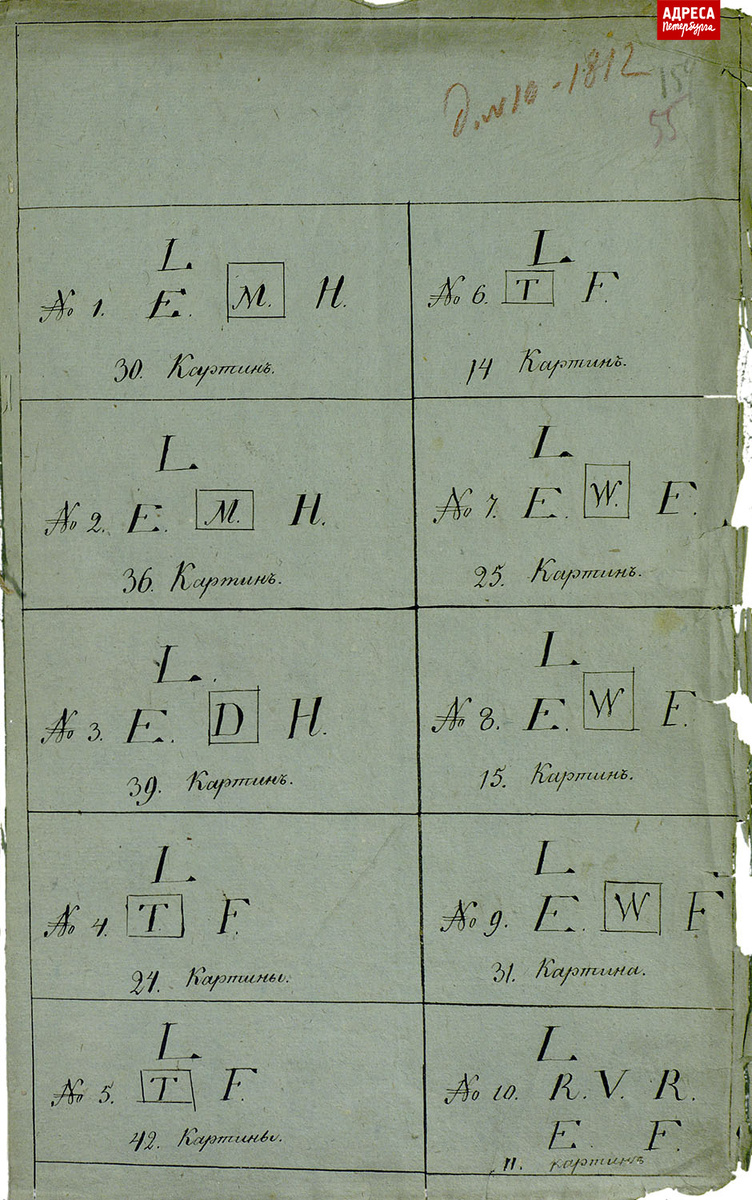 АДРЕСА
Петербурга
Д. № 10 - 1812
55
L
№ 1. E. M. H.
30. Картинъ.
L
№ 2. E. M. H.
36. Картинъ.
L.
№ 3. E. D H.
39. Картинъ.
L
№ 4. T. F.
24. Картины.
L
№ 5. T F.
42. Картины.
L
№ 6. T F.
14 Картинъ.
L
№ 7. E. W. F.
25. Картинъ.
L
№ 8. E. W F.
15. Картинъ.
L
№ 9. E. W F
31. Картина.
L
№ 10. R. V. R.
E. F.
11. картинъ